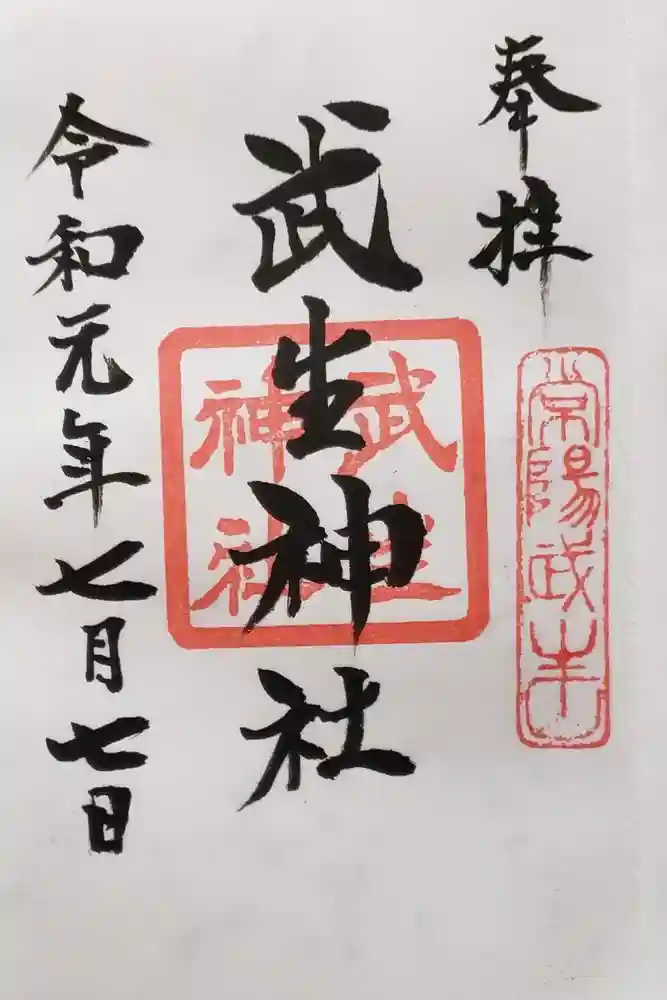 奉拝
常陽武生
武生神社
武生
神社
令和元年七月七日